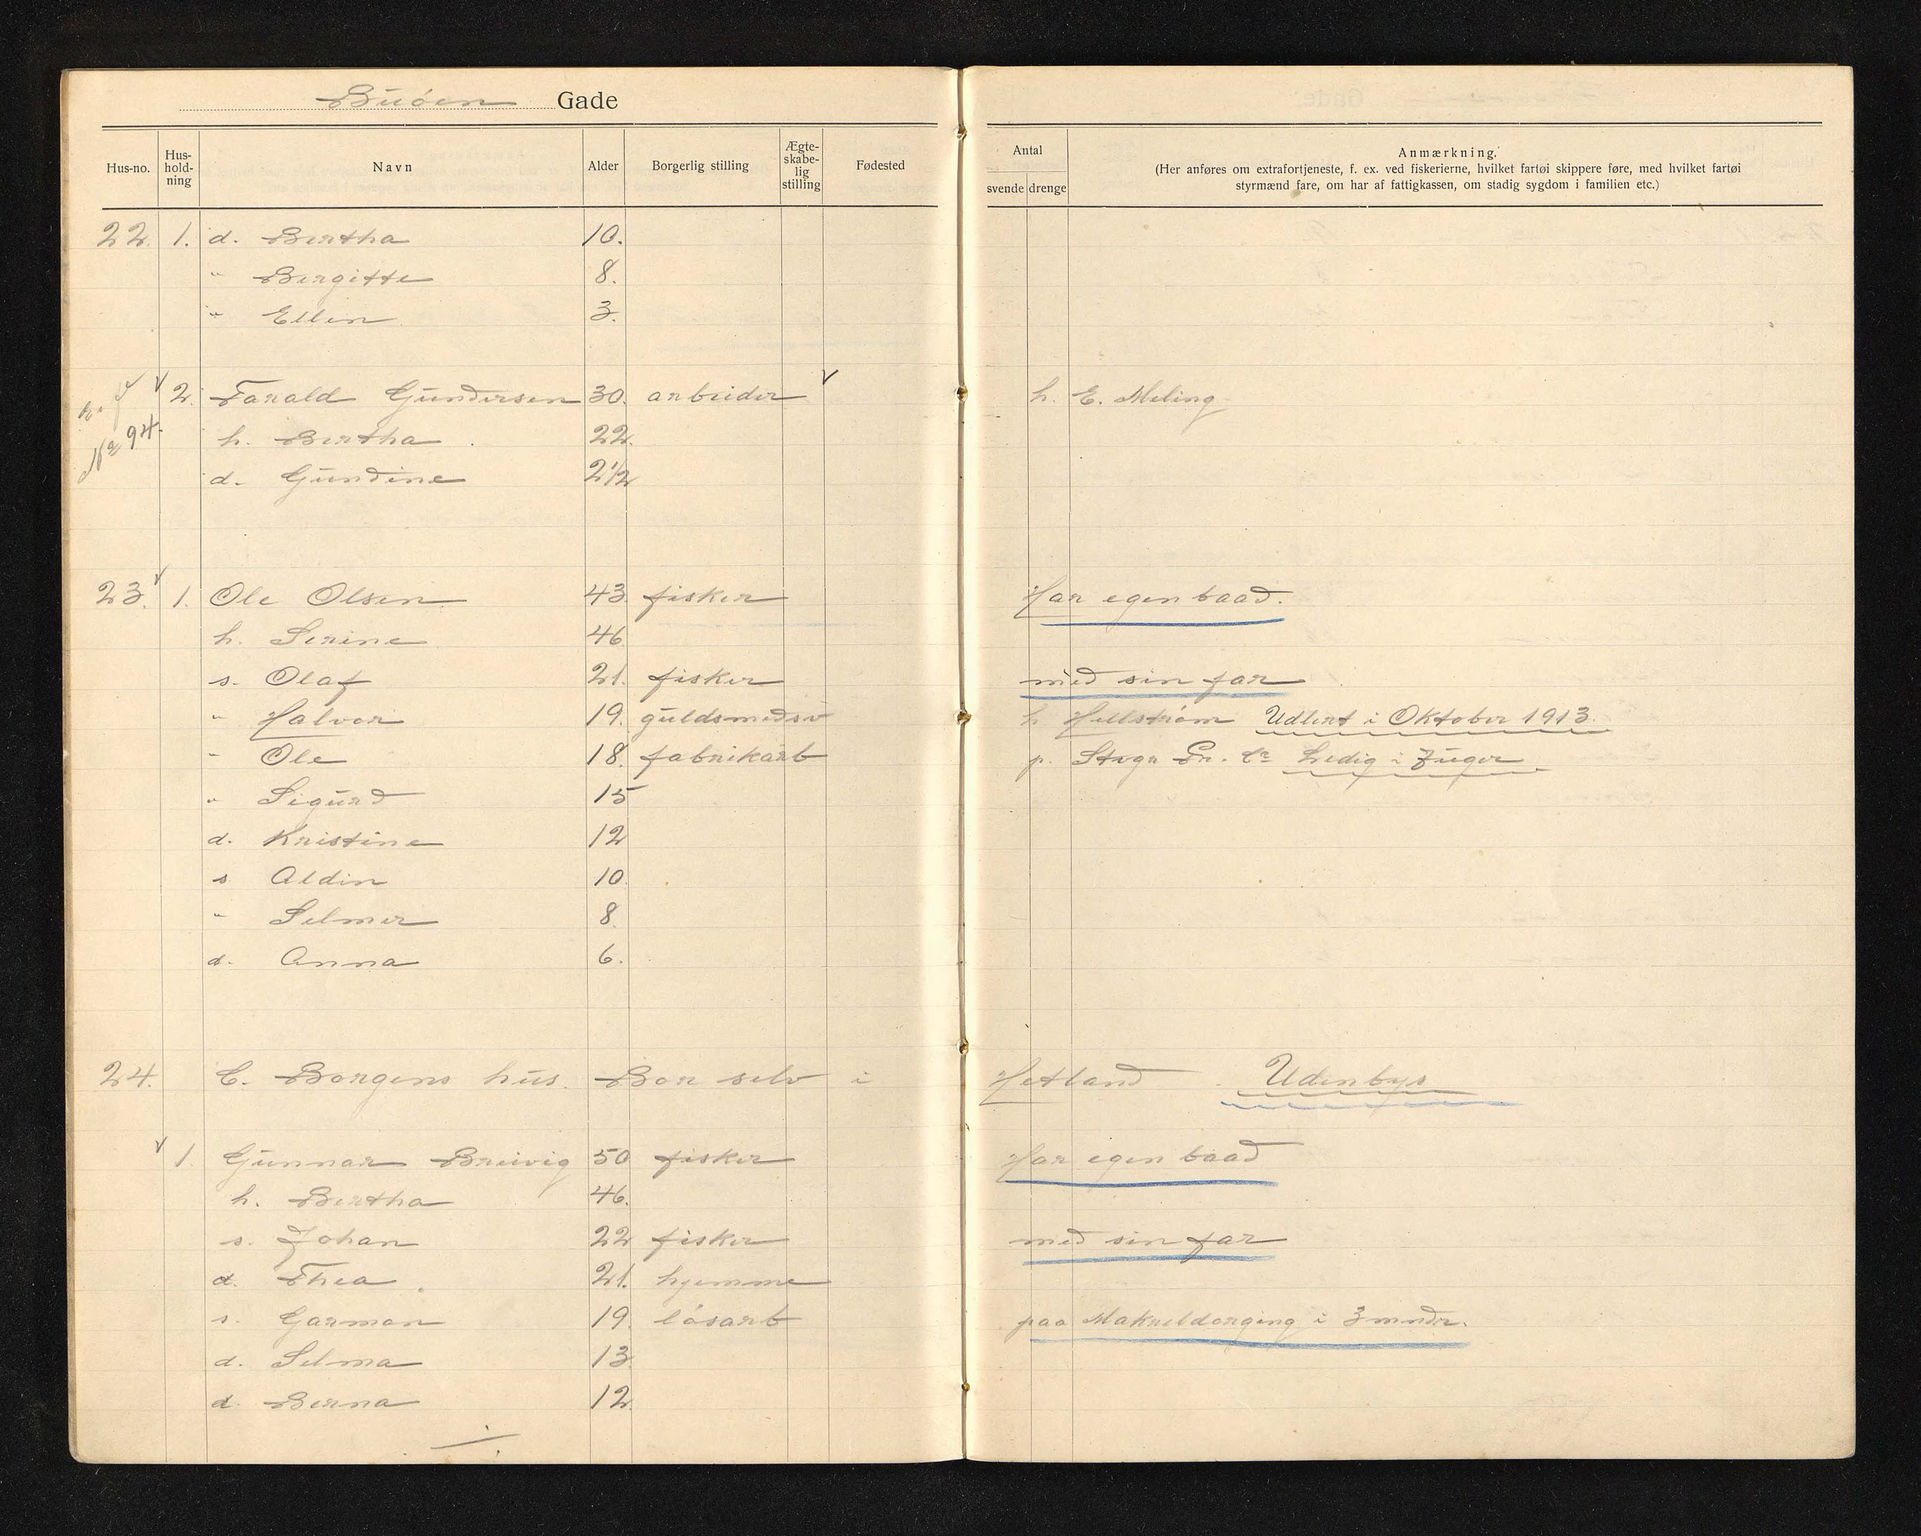 Buöen Gade
Hus-no. Hus-hold-ning Navn Alder Borgerlig stilling Ægte-skabe-lig stilling Fødested Antal svende drenge Anmærkning.
(Her anføres om extrafortjeneste, f. ex. ved fiskerierne, hvilket fartøi skippere føre, med hvilket fartøi
styrmænd fare, om har af fattigkassen, om stadig sygdom i familien etc.)
22. 1. d. Bertha 10.
" Bergitte 8.
" Ellen 3.
2. Tarald Gundersen 30. arbeider h. E. Meling
No 94. h. Bertha 22.
d. Gundine 2 1/2
23. 1. Ole Olsen 43 fisker Har egen baad.
h. Serine 46
s. Olaf 21. fisker med sin far
" Halvor 19. guldsmedsv h Hellstrøm Udlert i Oktober 1913.
" Ole 18. fabrikarb p. Stvgr Pr. Co Ledig i 7 uger
" Sigurd 15
d. Kristine 12
s Aldin 10
" Selmer 8
d. Anna 6.
24. C. Borgens hus. Bor selv i Hetland Udenbys
1. Gunnar Breivig 50 fisker Har egen baad
h. Bertha 46.
s. Johan 22 fisker med sin far
d. Thea 21. hjemme
s. Garman 19. lösarb paa Makreldorging i 3 mndr.
d. Selma 13
d. Berna 12